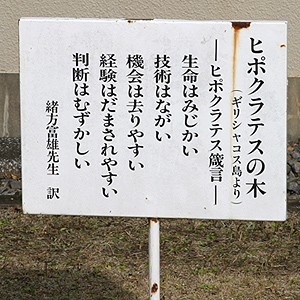 ヒポクラテスの木
（ギリシャコス島より）
―ヒポクラテス箴言―
生命はみじかい
技術はながい
機会は去りやすい
経験はだまされやすい
判断はむずかしい
緒方富雄先生 訳